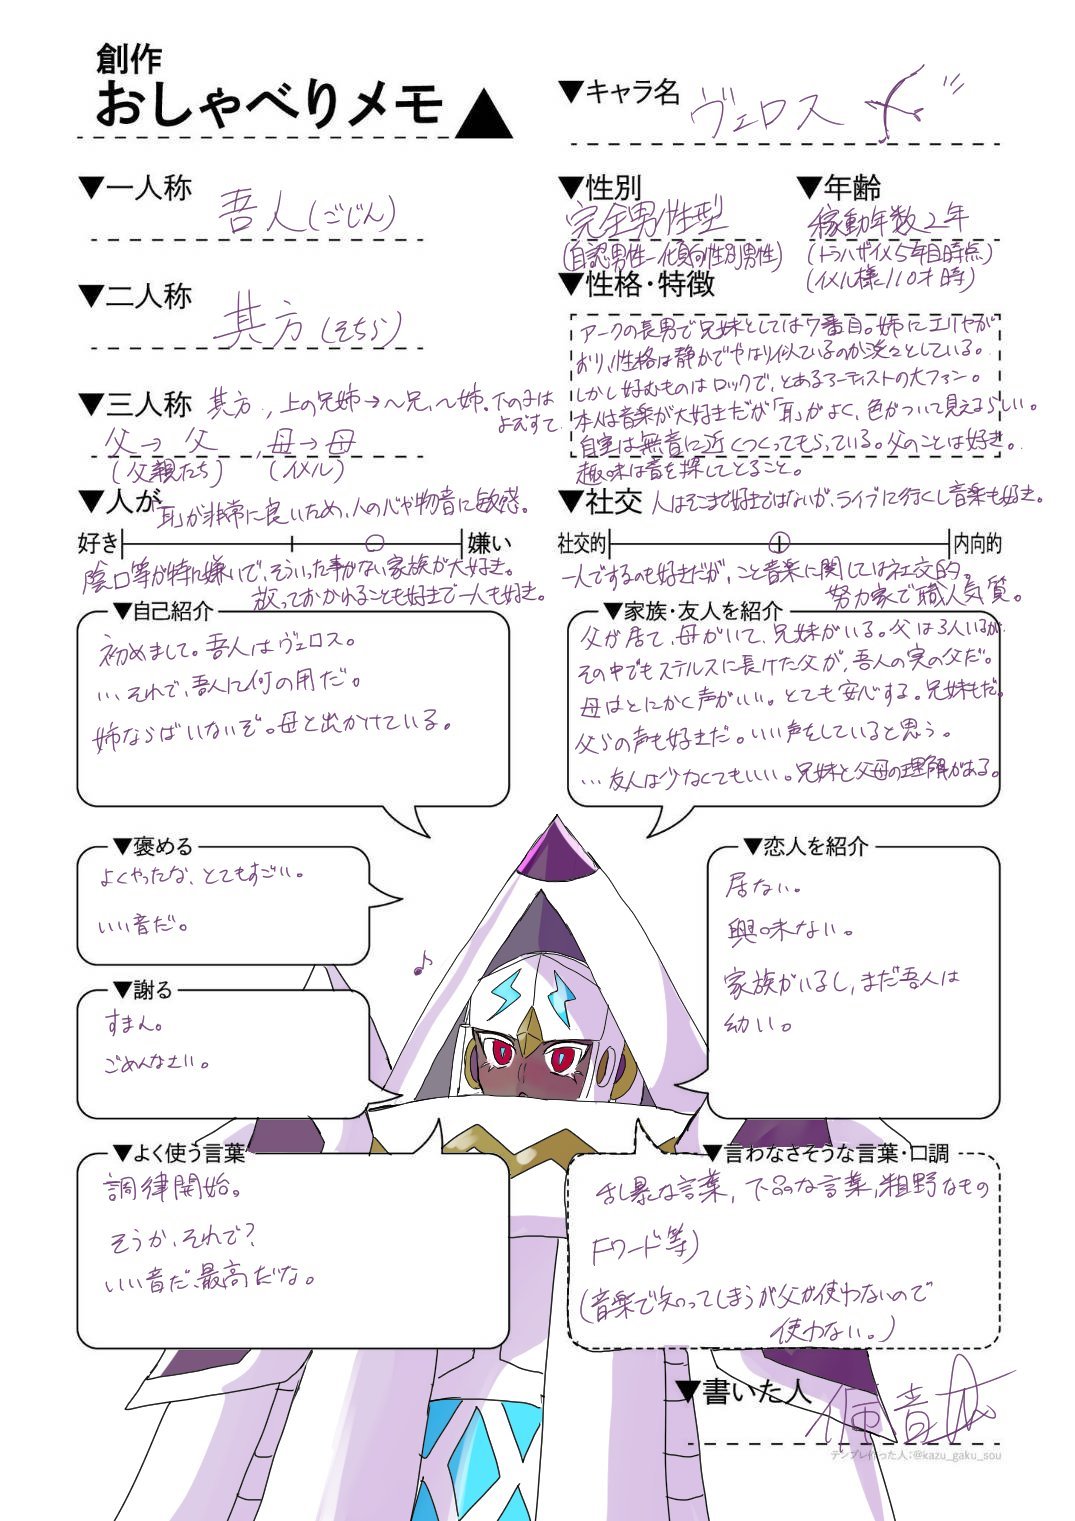 創作
おしゃべりメモ
▼キャラ名
ヴェロス
▼一人称
吾人(ごじん)
▼性別
完全男性型
(自認男性-傾向性別男性)
▼年齢
稼動年数2年
(トラハザイメ5年目時点)
(イメル様110才時)
▼二人称
其方(そちら)
▼性格・特徴
アークの長男で兄妹としては7番目。姉にエリヤが
おり、性格は静かでやはり似ているのか淡々としている。
しかし好むものはロックで、とあるアーティストの大ファン。
本人は音楽が大好きだが「耳」がよく、色がついて見えるらしい。
自室は無音に近くつくってもらっている。父のことは好き。
趣味は音を探してとること。
▼三人称
其方, 上の兄姉→〜兄,〜姉. 下の子は
よびすて
父→父, 母→母
(父親たち) (イメル)
▼人が
「耳」が非常に良いため、人の心や物音に敏感。
好き
嫌い
陰口等が特に嫌いで、そういった事がない家族が大好き。
放っておかれることも好きで一人も好き。
▼社交
人はそこまで好きではないが、ライブに行くし音楽も好き。
社交的
内向的
一人でするのも好きだが、こと音楽に関しては社交的。
努力家で職人気質。
▼自己紹介
初めまして。吾人はヴェロス。
…それで、吾人に何の用だ。
姉ならばいないぞ。母と出かけている。
▼家族・友人を紹介
父が居て、母がいて、兄妹がいる。父は3人いるが
その中でもステルスに長けた父が、吾人の実の父だ。
母はとにかく声がいい。とても安心する。兄妹もだ。
父らの声も好きだ。いい声をしていると思う。
…友人は少なくてもいい。兄妹と父母の理解がある。
▼褒める
よくやったな、とてもすごい。
いい音だ。
▼謝る
すまん。
ごめんなさい。
▼恋人を紹介
居ない。
興味ない。
家族がいるし、まだ吾人は
幼い。
♪
▼よく使う言葉
調律開始。
そうか、それで?
いい音だ、最高だな。
▼言わなさそうな言葉・口調
乱暴な言葉, 下品な言葉,粗野なもの
Fワード等)
(音楽で知ってしまうが父が使わないので
使わない。)
▼書いた人
テンプレ作った人:@kazu_gaku_sou